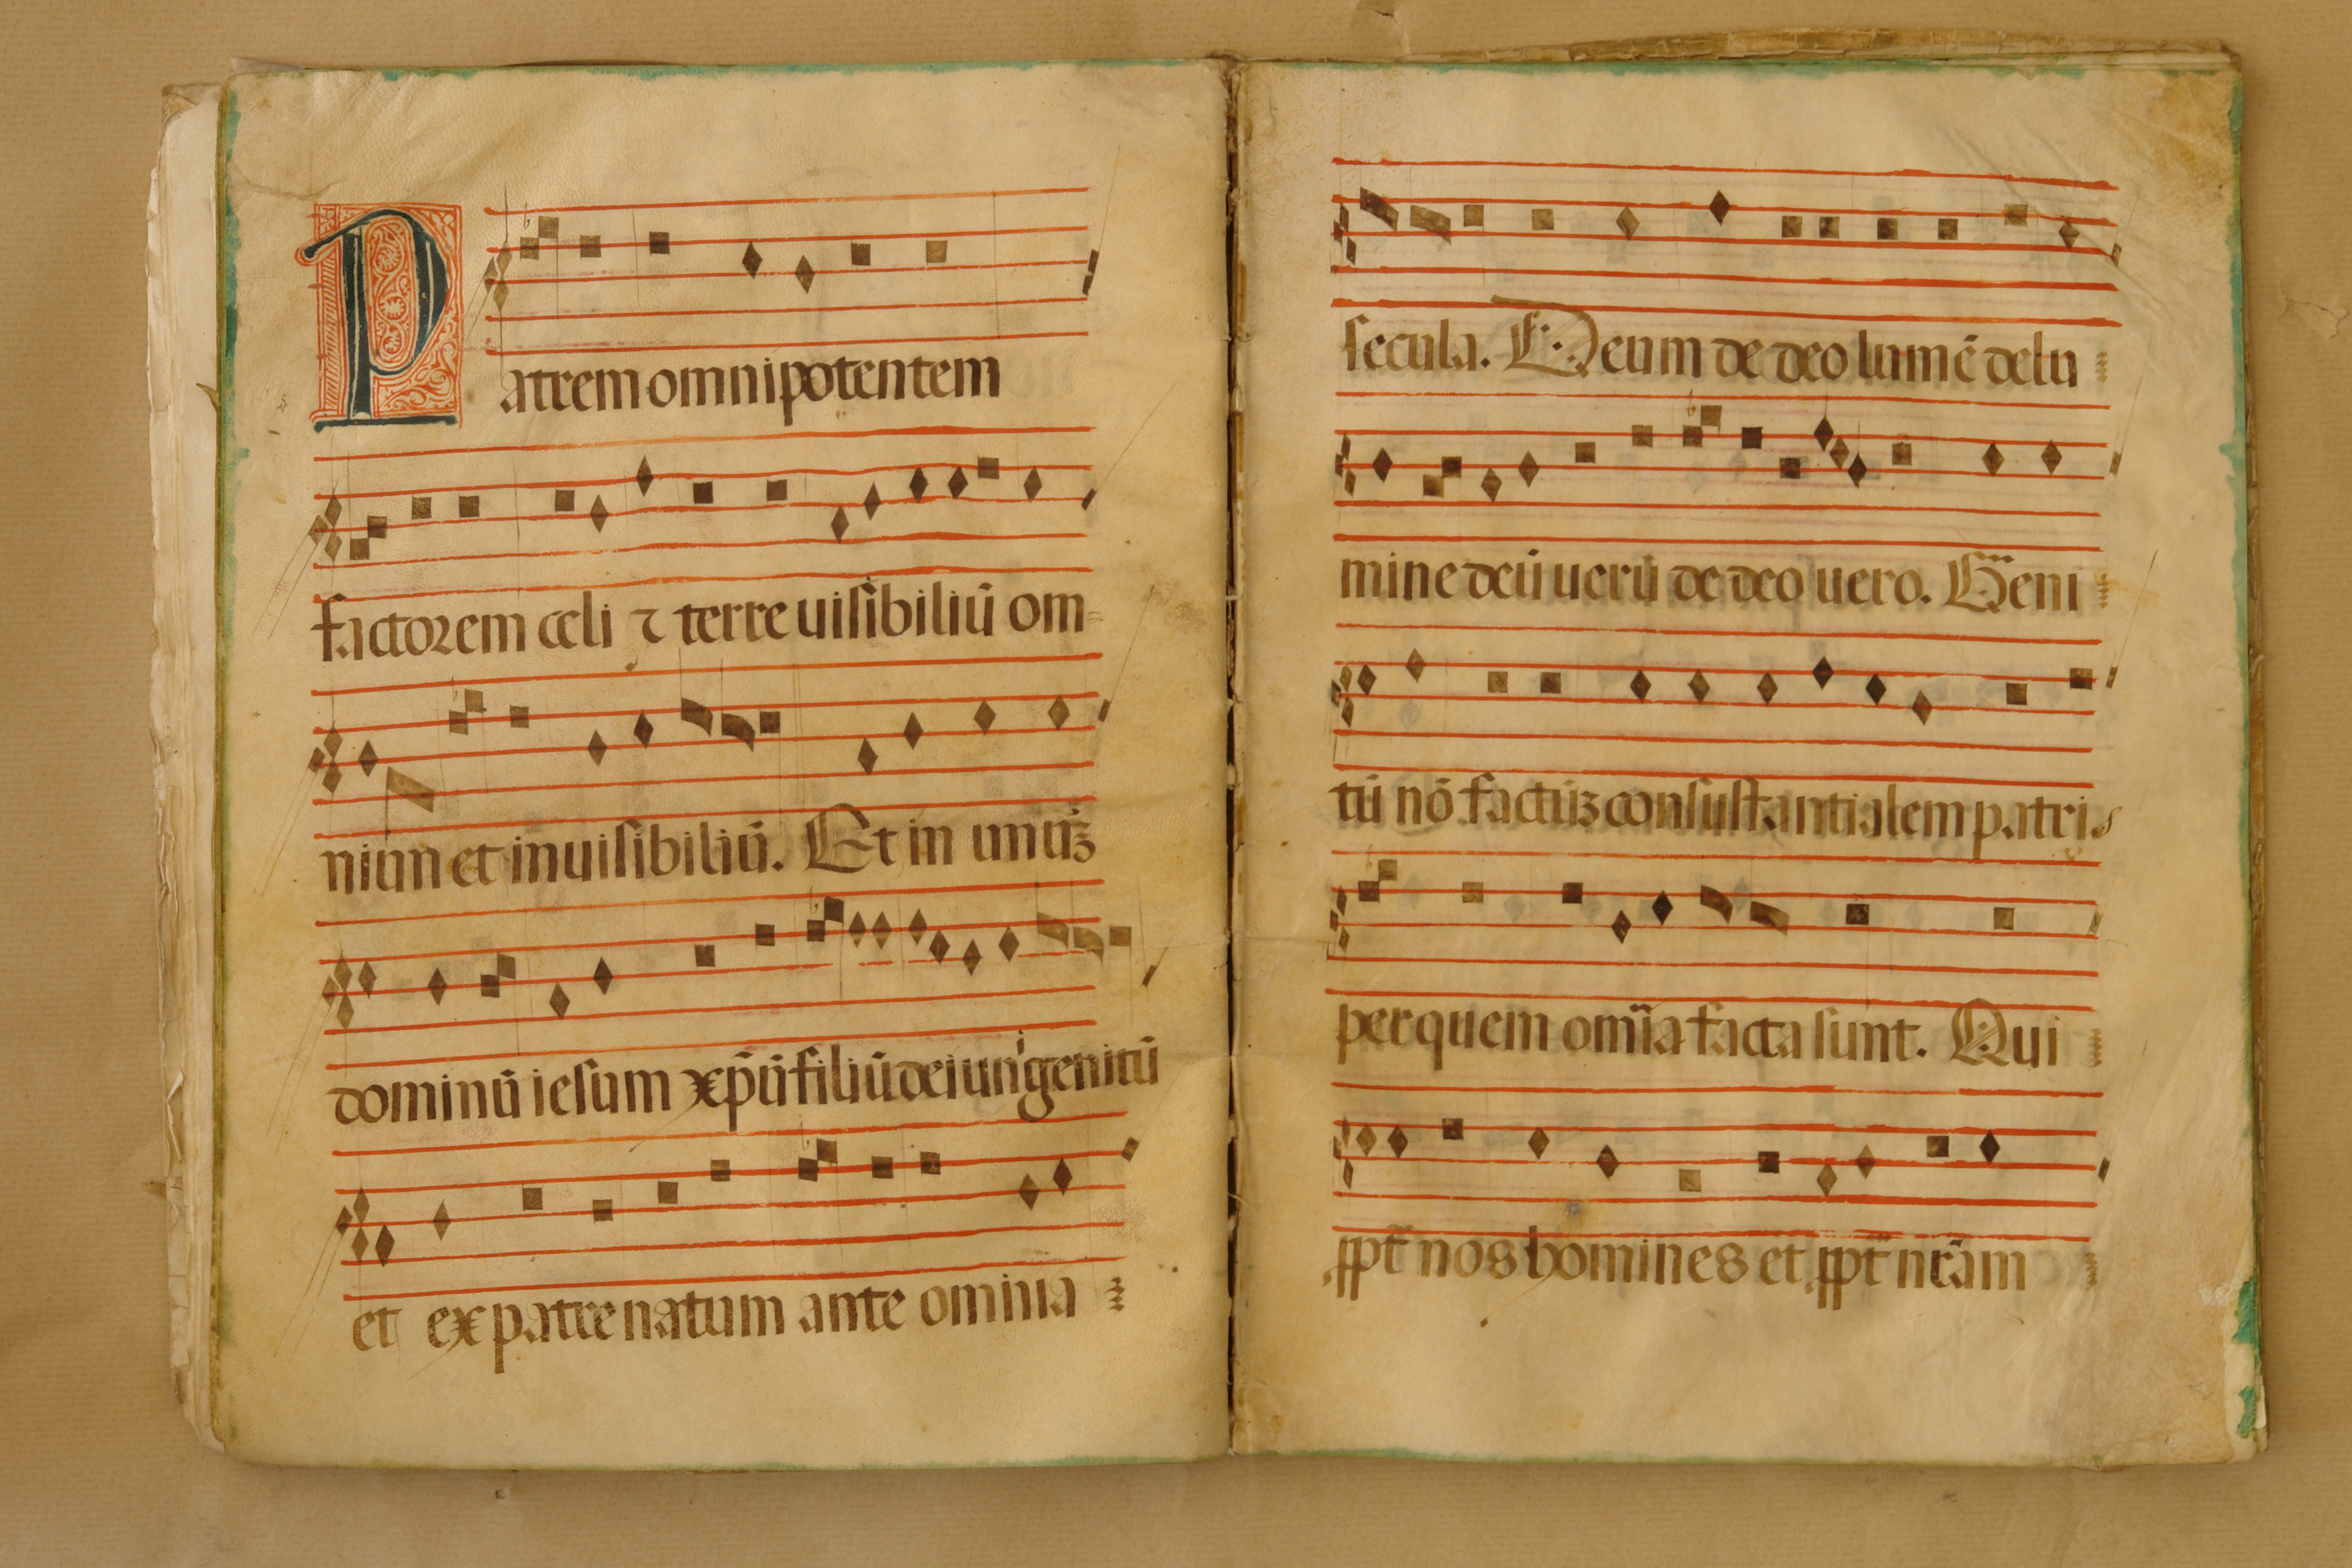 Patrem omnipotentem
factorem celi ⁊ terre uisibiliū om-
nium et inuisibiliū. Et in unūꝫ
dominū iesum xp̄ū filiū dei unigenitū
et ex patre natum ante omnia
secula. Deum de deo lumē de lu
mine deū uerū de deo uero. Geni
tū nō factūꝫ consustantialem patris
per quem om̄ia facta sunt. Qui
ꝓpt̄ nos homines et ꝓpt̄ nr̄am